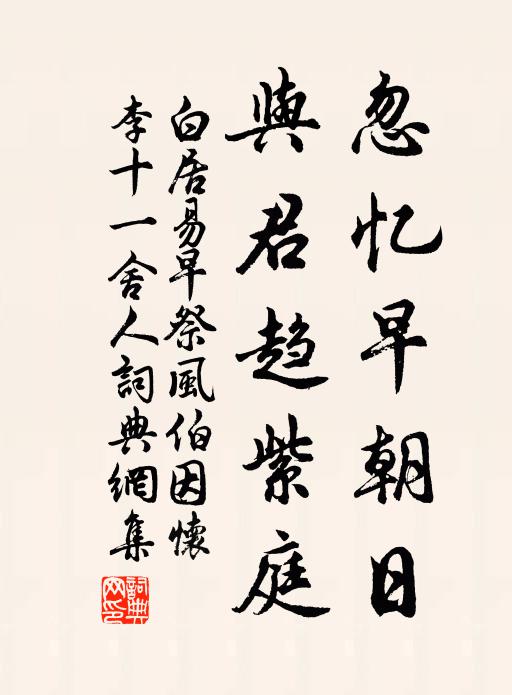 忽忆早朝日
與君趋紫庭
白居易早祭風伯因懷
李十一舍人詞典網集
詞典网印